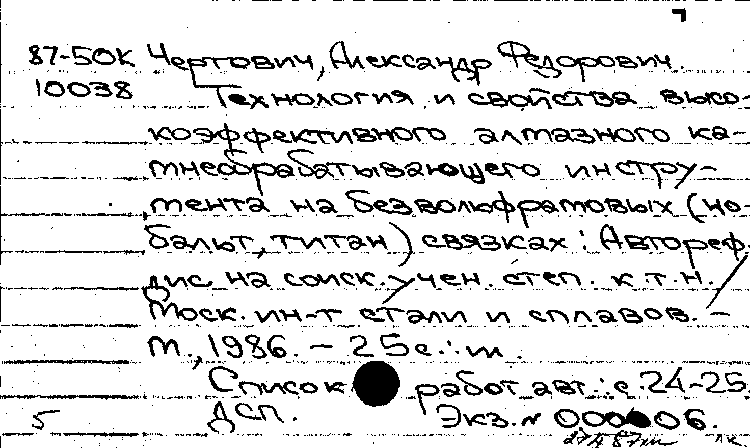 87-50К Чертович, Александр Федорович.
10038 Технология и свойства высо-
коэффективного алмазного ка-
мнеобрабатывающего инстру-
мента на безвольфрамовых (ко-
бальт, титан) связках: Автореф.
дис. на соиск. учен. степ. к.т.н. /
Моск. ин-т стали и сплавов. –
М., 1986. – 25 с.: ил.
Список работ авт.: с. 24-25.
5 ДСП. Экз. № 000006.